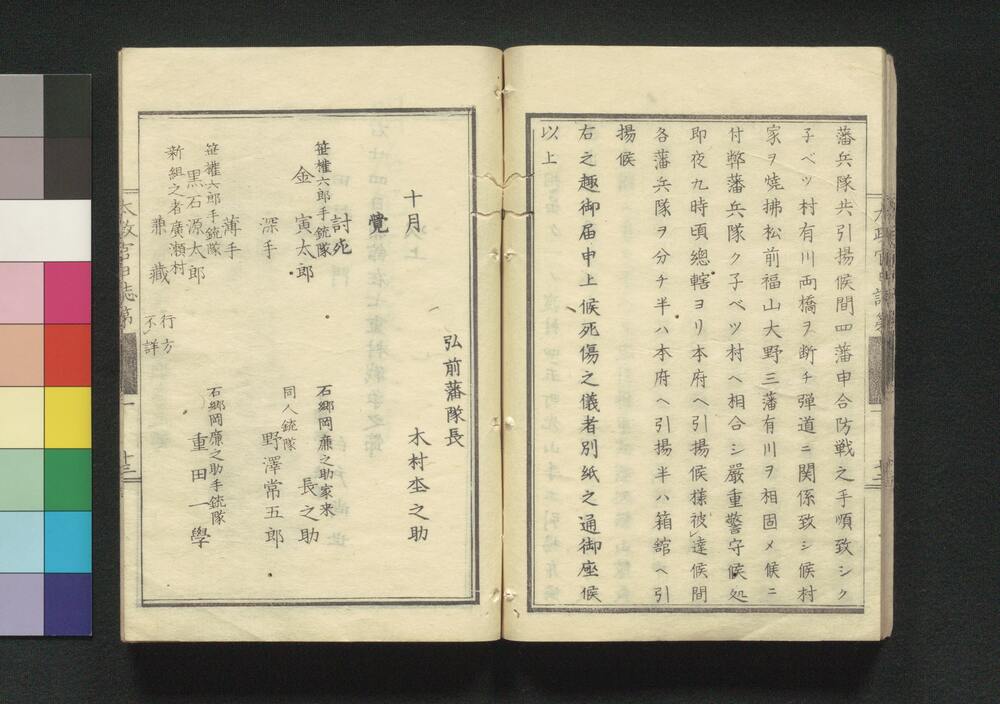 藩兵隊共引揚候間四藩申合防戦之手順致シク
子ベツ村有川両橋ヲ断チ弾道ニ関係致シ候村
家ヲ焼拂松前福山大野三藩有川ヲ相固メ候ニ
付弊藩兵隊ク子ベツ村ヘ相合シ嚴重警守候処
即夜九時頃總轄ヨリ本府ヘ引揚候様被達候間
各藩兵隊ヲ分チ半ハ本府ヘ引揚半ハ箱舘ヘ引
揚候
右之趣御届申上候死傷之儀者別紙之通御座候
以上
弘前藩隊長
十月
木村杢之助
覚
討死
笹権六郎手銃隊
金寅太郎
石郷岡廉之助家来
長之助
深手
同人銃隊
野澤常五郎
薄手
笹権六郎手銃隊
黒石源太郎
石郷岡廉之助手銃隊
重田一學
新組之者廣瀬村
兼藏
行方
不詳
十三